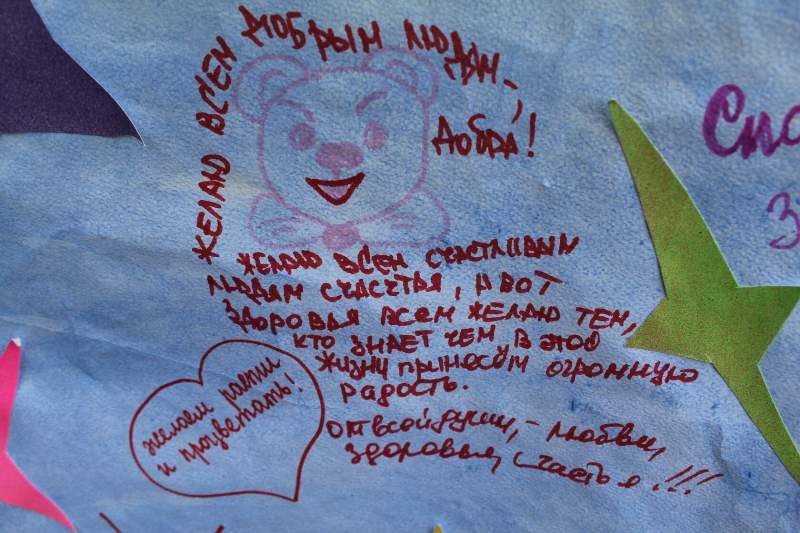 ЖЕЛАЮ ВСЕМ ДОБРЫМ ЛЮДЯМ, –
ДОБРА!
ЖЕЛАЮ ВСЕМ СЧАСТЛИВЫМ
ЛЮДЯМ СЧАСТЬЯ, А ВОТ
ЗДОРОВЬЯ ВСЕМ ЖЕЛАЮ ТЕМ,
КТО ЗНАЕТ ЧЕМ В ЭТОЙ
ЖИЗНИ ПРИНЕСЁМ ОГРОМНУЮ
РАДОСТЬ.
От всей души, – любви,
здоровья, счастья!!!
желаем расти
и процветать!
Спа
З